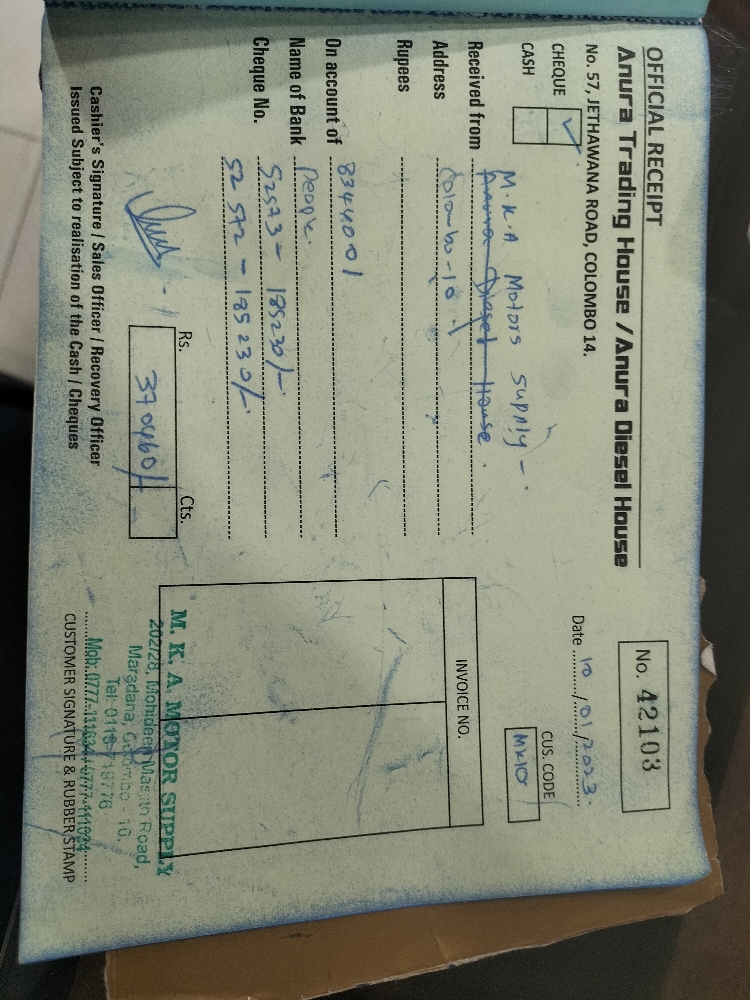 OFFICIAL RECEIPT
Anura Trading House / Anura Diesel House
No. 57, JETHAWANA ROAD, COLOMBO 14.
No. 42103
Date 10/01/2023.
CHEQUE ✓
CASH
CUS. CODE
MK10
M.K.A Motors supply -.
Received from Anura Diesel House.
Address Colombo-10
Rupees
On account of 8344001
Name of Bank People.
Cheque No. 52573 - 185230/-
52572 - 185230/-
INVOICE NO.
Rs. Cts.
370460/-
M. K. A. MOTOR SUPPLY
202/28, Mohideen Masjith Road,
Maradana, Colombo - 10.
Mob: 0777-111634 / 0777-111034
Cashier's Signature / Sales Officer / Recovery Officer
CUSTOMER SIGNATURE & RUBBER STAMP
Issued Subject to realisation of the Cash / Cheques